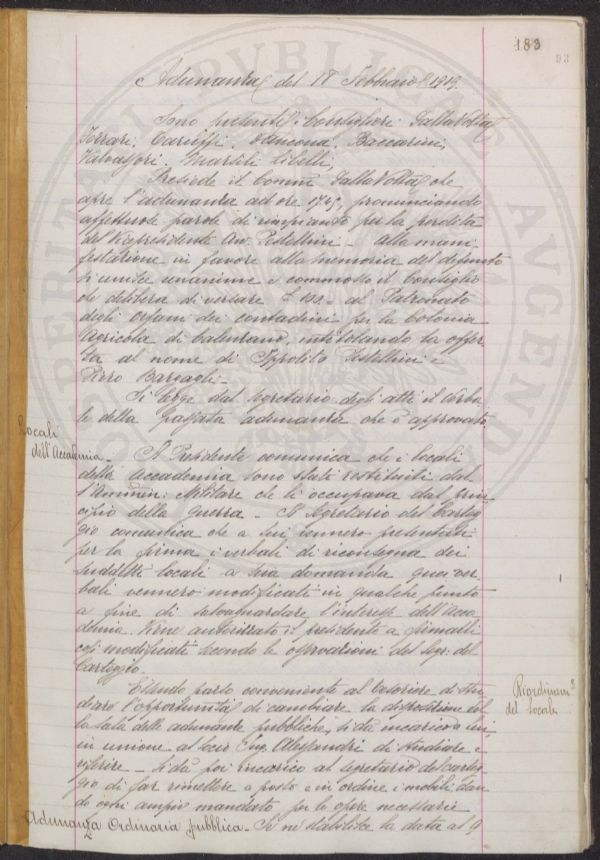 183
93
Adunanza del 17 Febbraio 1919.
Sono presenti i Consiglieri Dalla Volta
Ferrari, Carieffi, D'Ancona, Baccarini,
Valvassori, Martini Cibelli,
Presiede il Comm. Dalla Volta che
apre l'adunanza ad ore 17.45, pronunciando
affettuose parole di rimpianto per la perdita
del Vicepresidente Avv. Pestellini - Alla mani
festazione in favore alla memoria del defunto
si unisce unanime e commosso il Consiglio
che delibera di versare £ al Patronato
degli orfani dei contadini per la Colonia
Agricola di intitolando la offer
ta al nome di Ippolito Pestellini e
Piero Bargagli -
Si legge dal Segretario degli atti il verba
le della passata adunanza che è approvato
Locali
dell'Accademia - Il Presidente comunica che i locali
della Accademia sono stati restituiti dal
l'Ammin: Militare che li occupava dal prin-
cipio della guerra - Il Segretario del Carteg
gio comunica che a lui vennero presentati
per la firma i verbali di riconsegna dei
suddetti locali a sua domanda quei ver-
bali vennero modificati in qualche punto
a fine di salvaguardare l'interesse dell'Acca
demia. Viene autorizzato il presidente a firmarli
così modificati secondo le osservazioni del Segr. del
Carteggio -
Riordinam.to
del Locale
Essendo parso conveniente al Tesoriere di stu
diare l'opportunità di cambiare la disposizione del
la sala delle adunanze pubbliche, si dà incarico a lui
in unione al socio Ing. Alessandri di studiare e
riferire - Si dà poi incarico al Segretario del carteg
gio di far rimettere a posto e in ordine i mobili dan
do ogni ampio mandato per le opere necessarie
Adunanza Ordinaria pubblica - Si ne stabilisce la data al 9